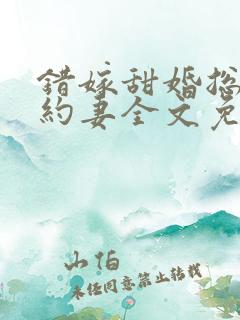 錯嫁甜婚总
約妻全文免
山怕
未任同意禁止转载